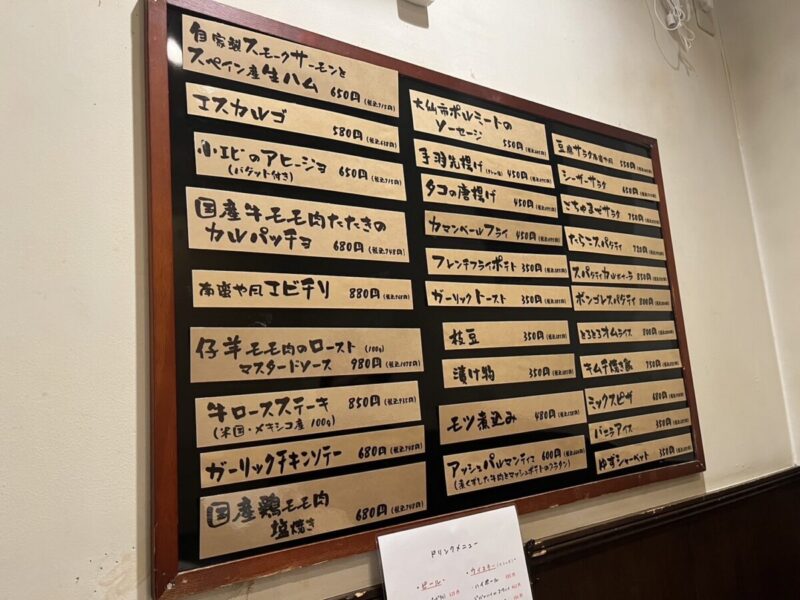 自家製スモークサーモンと
スペイン産生ハム 650円 (税込715円)
エスカルゴ 580円 (税込638円)
小エビのアヒージョ 650円 (税込715円)
(バゲット付き)
国産牛モモ肉たたきの
カルパッチョ 680円 (税込748円)
南蛮や風エビチリ 880円 (税込968円)
仔羊モモ肉のロースト (100g)
マスタードソース 980円 (税込1078円)
牛ロースステーキ 850円 (税込935円)
(米国・メキシコ産 100g)
ガーリックチキンソテー 680円 (税込748円)
国産鶏モモ肉
塩焼き 680円 (税込748円)
大仙市ポルミートの
ソーセージ 550円
手羽先揚げ 450円
タコの唐揚げ 450円
カマンベールフライ 450円
フレンチフライポテト 350円
ガーリックトースト 350円
枝豆 350円
漬け物 350円
モツ煮込み 480円
アッシュパルマンティエ 600円
(赤くずした牛肉とマッシュポテトのグラタン)
豆腐サラダ南蛮や風 550円
シーザーサラダ 650円
ごちゃまぜサラダ 750円
たらこスパゲティ 750円
スパゲティカルボナーラ 850円
ボンゴレスパゲティ 800円
とろとろオムライス 800円
キムチ焼き飯 750円
ミックスピザ 680円
バニラアイス 350円
ゆずシャーベット 350円
ドリンクメニュー
・ビール・
・ウイスキー
・ハイボール